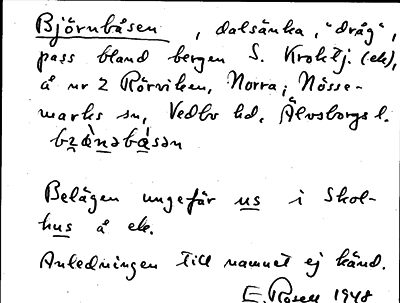 Björnbåsen, dalsänka, "dråg",
pass bland bergen S. Kroktj. (ek),
å nr 2 Rörviken, Norra, Nösse-
marks sn, Vedbo hd, Älvsborgs l.
Belägen ungefär us i Skol-
hus å ek.
Anledningen till namnet ej känd.
E. Rosell 1948